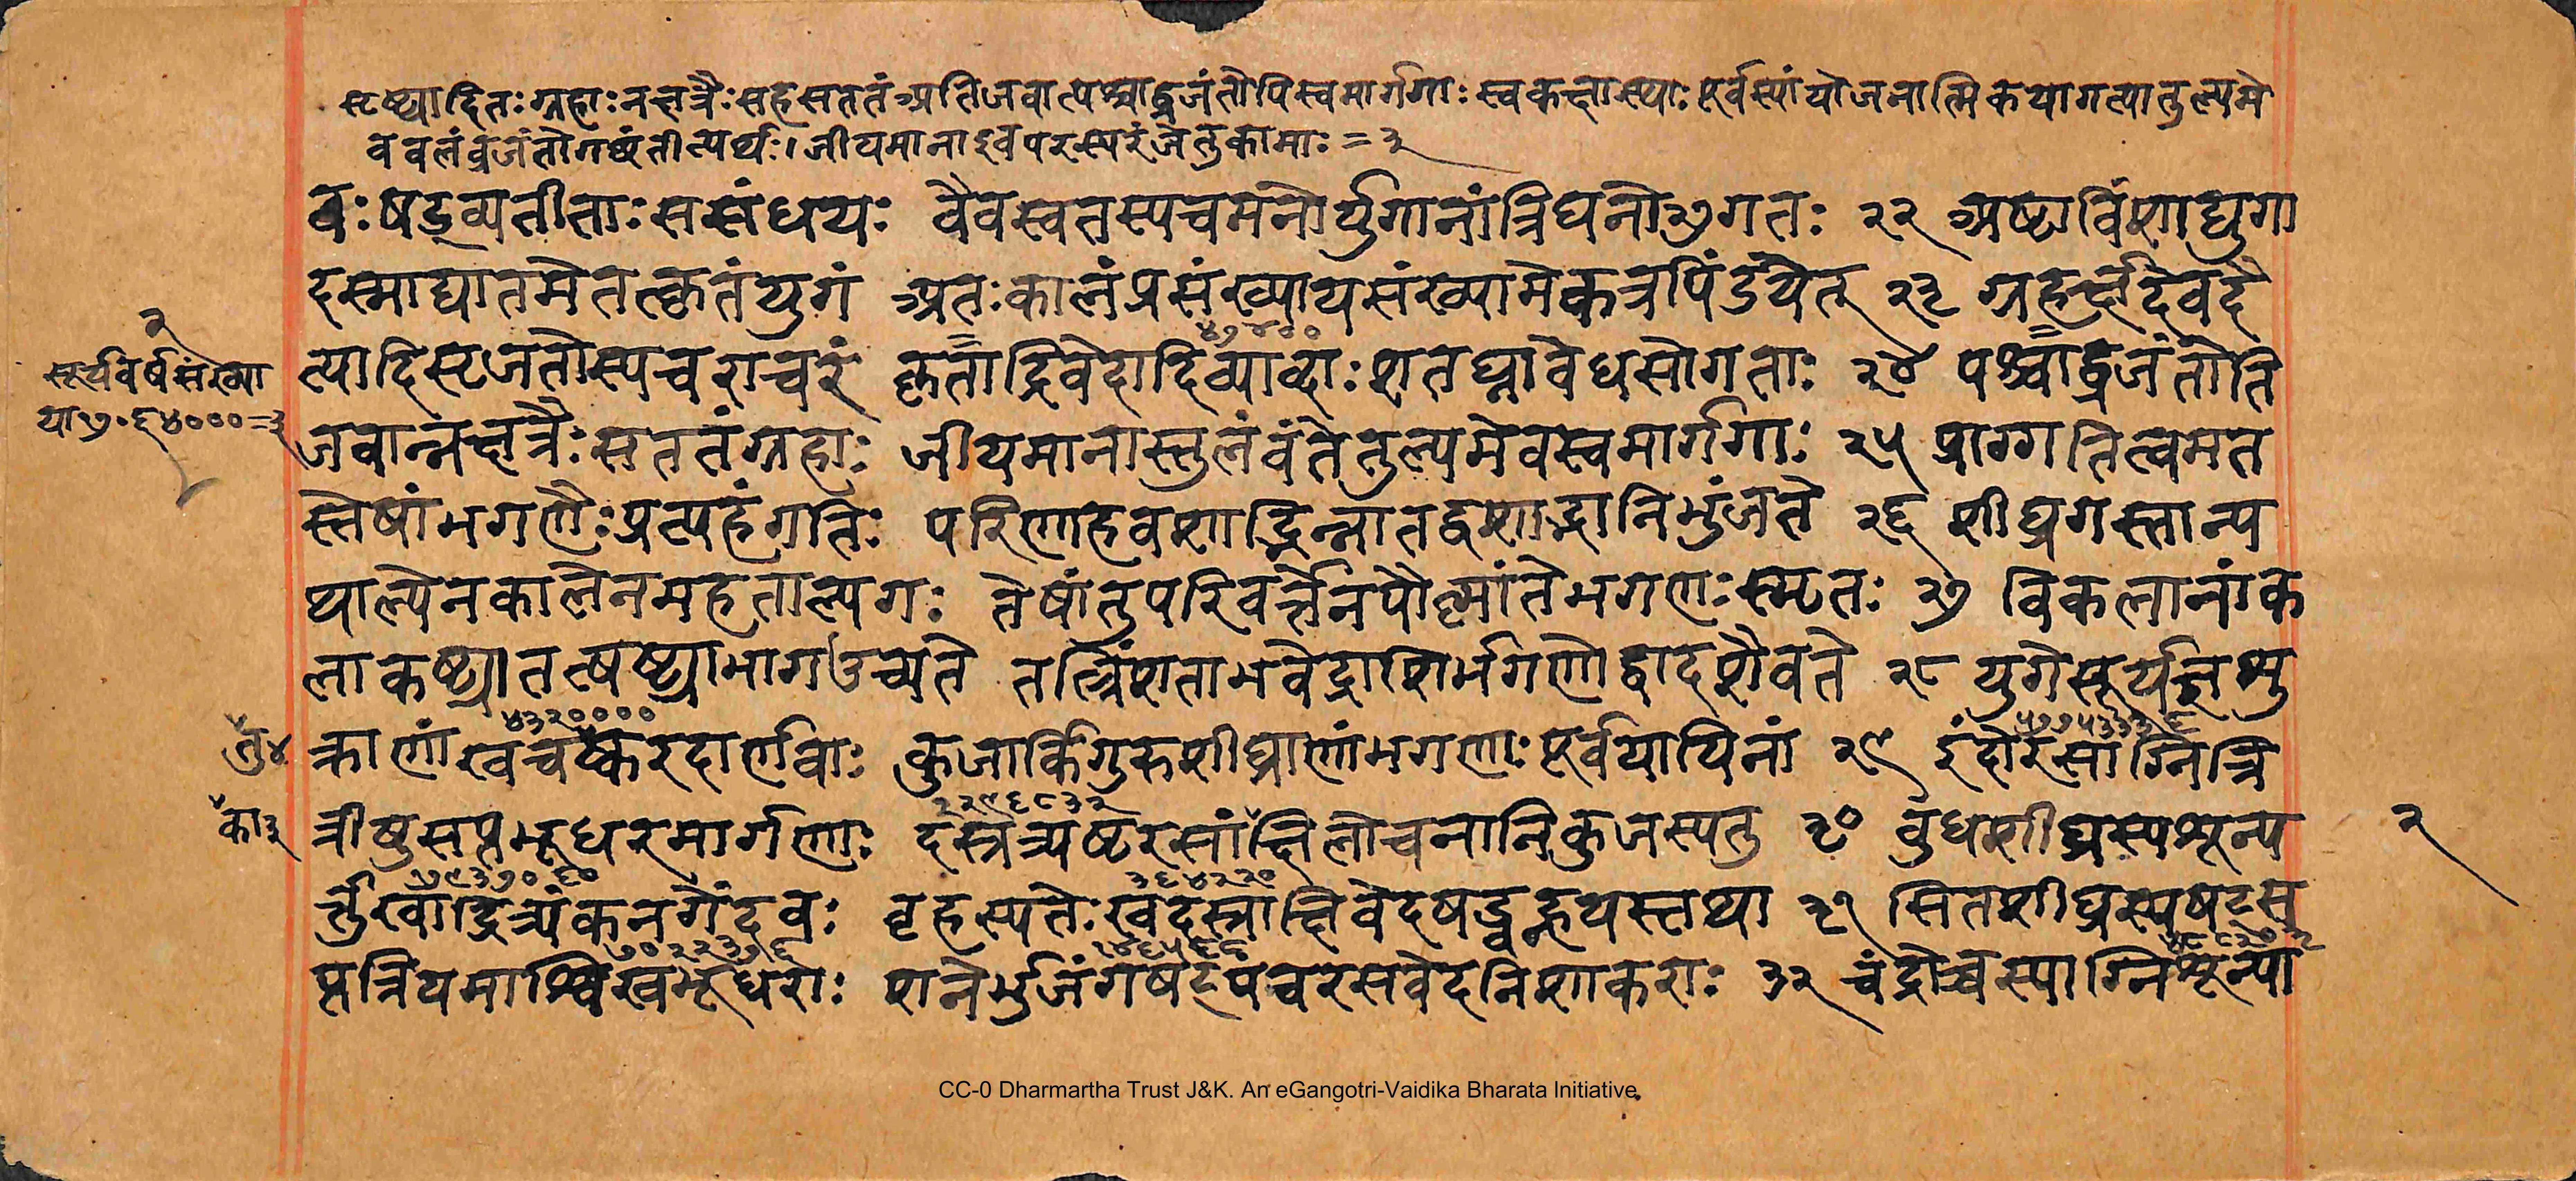 सृष्ट्यादितः ग्रहाः नक्षत्रैः सह सततं अतिजवात्पश्चाद्व्रजंतोपि स्वमार्गगाः स्वकक्षास्थाः पूर्वस्यां योजनात्मिकया गत्या तुल्यमे
व वलंव्रजंतो गछंतीत्यर्थः। जीयमाना इव परस्परं जेतुकामाः = ३
वः षड्व्यतीताः ससंधयः वैवस्वतस्य च मनोर्युगानां त्रिघनो गतः २२ अष्टाविंशाद्युगा
दस्माद्यातमेतत्कृतं युगं अतः कालं प्रसंख्याय संख्यामेकत्र पिंडयेत् २३ ग्रहर्क्षदेवदै
४७४००
त्यादि सृजतोस्य चराचरं कृताद्रिवेदा दिव्याब्दाः शतघ्ना वेधसो गताः २४ पश्चाद्व्रजंतोति
२
सूर्यवर्षसंख्या
या ७०६४००० = ३
जवान्नक्षत्रैः सततं ग्रहाः जीयमानास्तु लंवंते तुल्यमेव स्वमार्गगाः २५ प्राग्गतित्वमत
स्तेषां भगणैः प्रत्यहं गतिः परिणाहवशाद्भिन्ना तद्वशाद्भानि भुंजते २६ शीघ्रगस्तान्य
थाल्पेन कालेन महताल्पगः तेषां तु परिवर्त्तेन पौष्मांते भगणः स्मृतः २७ विकलानां क
ला कष्ट्या तत्षष्ट्या भाग उच्यते तत्त्रिंशता भवेद्राशिर्भगणो द्वादशैव ते २८ युगे सूर्यज्ञभु
४३२०००० ५७७५३३३६
तु४
क्राणां खचष्करदार्णवाः कुजार्किगुरुशीघ्राणां भगणाः पूर्वयायिनां २९ इंदो रसाग्नित्रि
२२९६८३२
का३
त्रीषुसप्तभूधरमार्गणाः दस्रत्र्यष्टरसांक्षिलोचनानि कुजस्य तु ३० वुधशीघ्रस्य शून्य
१७९३७०६० ३६४२२०
र्त्तुखाद्रित्र्यंकनगेंदवः वृहस्पतेः खदस्राक्षिवेदषड्वह्नयस्तथा ३१ सितशीघ्रस्य षट्स
७०२२३७६ १४६५६८
प्तत्रियमाश्विखभूधराः शनेर्भुजंगषट्पंचरसवेदनिशाकराः ३२ चंद्रोच्चस्याग्निशून्या
२
CC-0 Dharmartha Trust J&K. An eGangotri-Vaidika Bharata Initiative